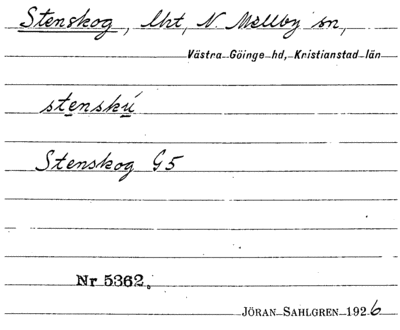 Stenskog, lht, N. Mellby sn,
Västra Göinge hd, Kristianstad län
stenskú
Stenskog G5
Nr 5362.
JÖRAN SAHLGREN 1926